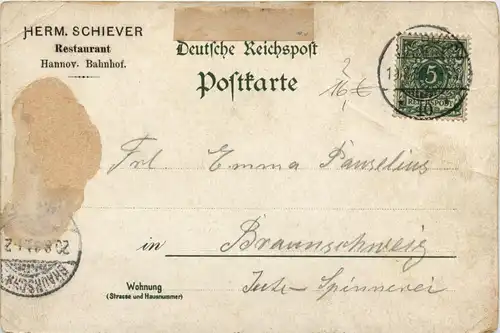 HERM. SCHIEVER
Restaurant
Hannov. Bahnhof.
Deutsche Reichspost
Postkarte
16,
5
REICHSPOST
Frl. Emma Pänselius
in Braunschweig
Jute-Spinnerei
Wohnung
(Strasse und Hausnummer)
BRAUNSCHW